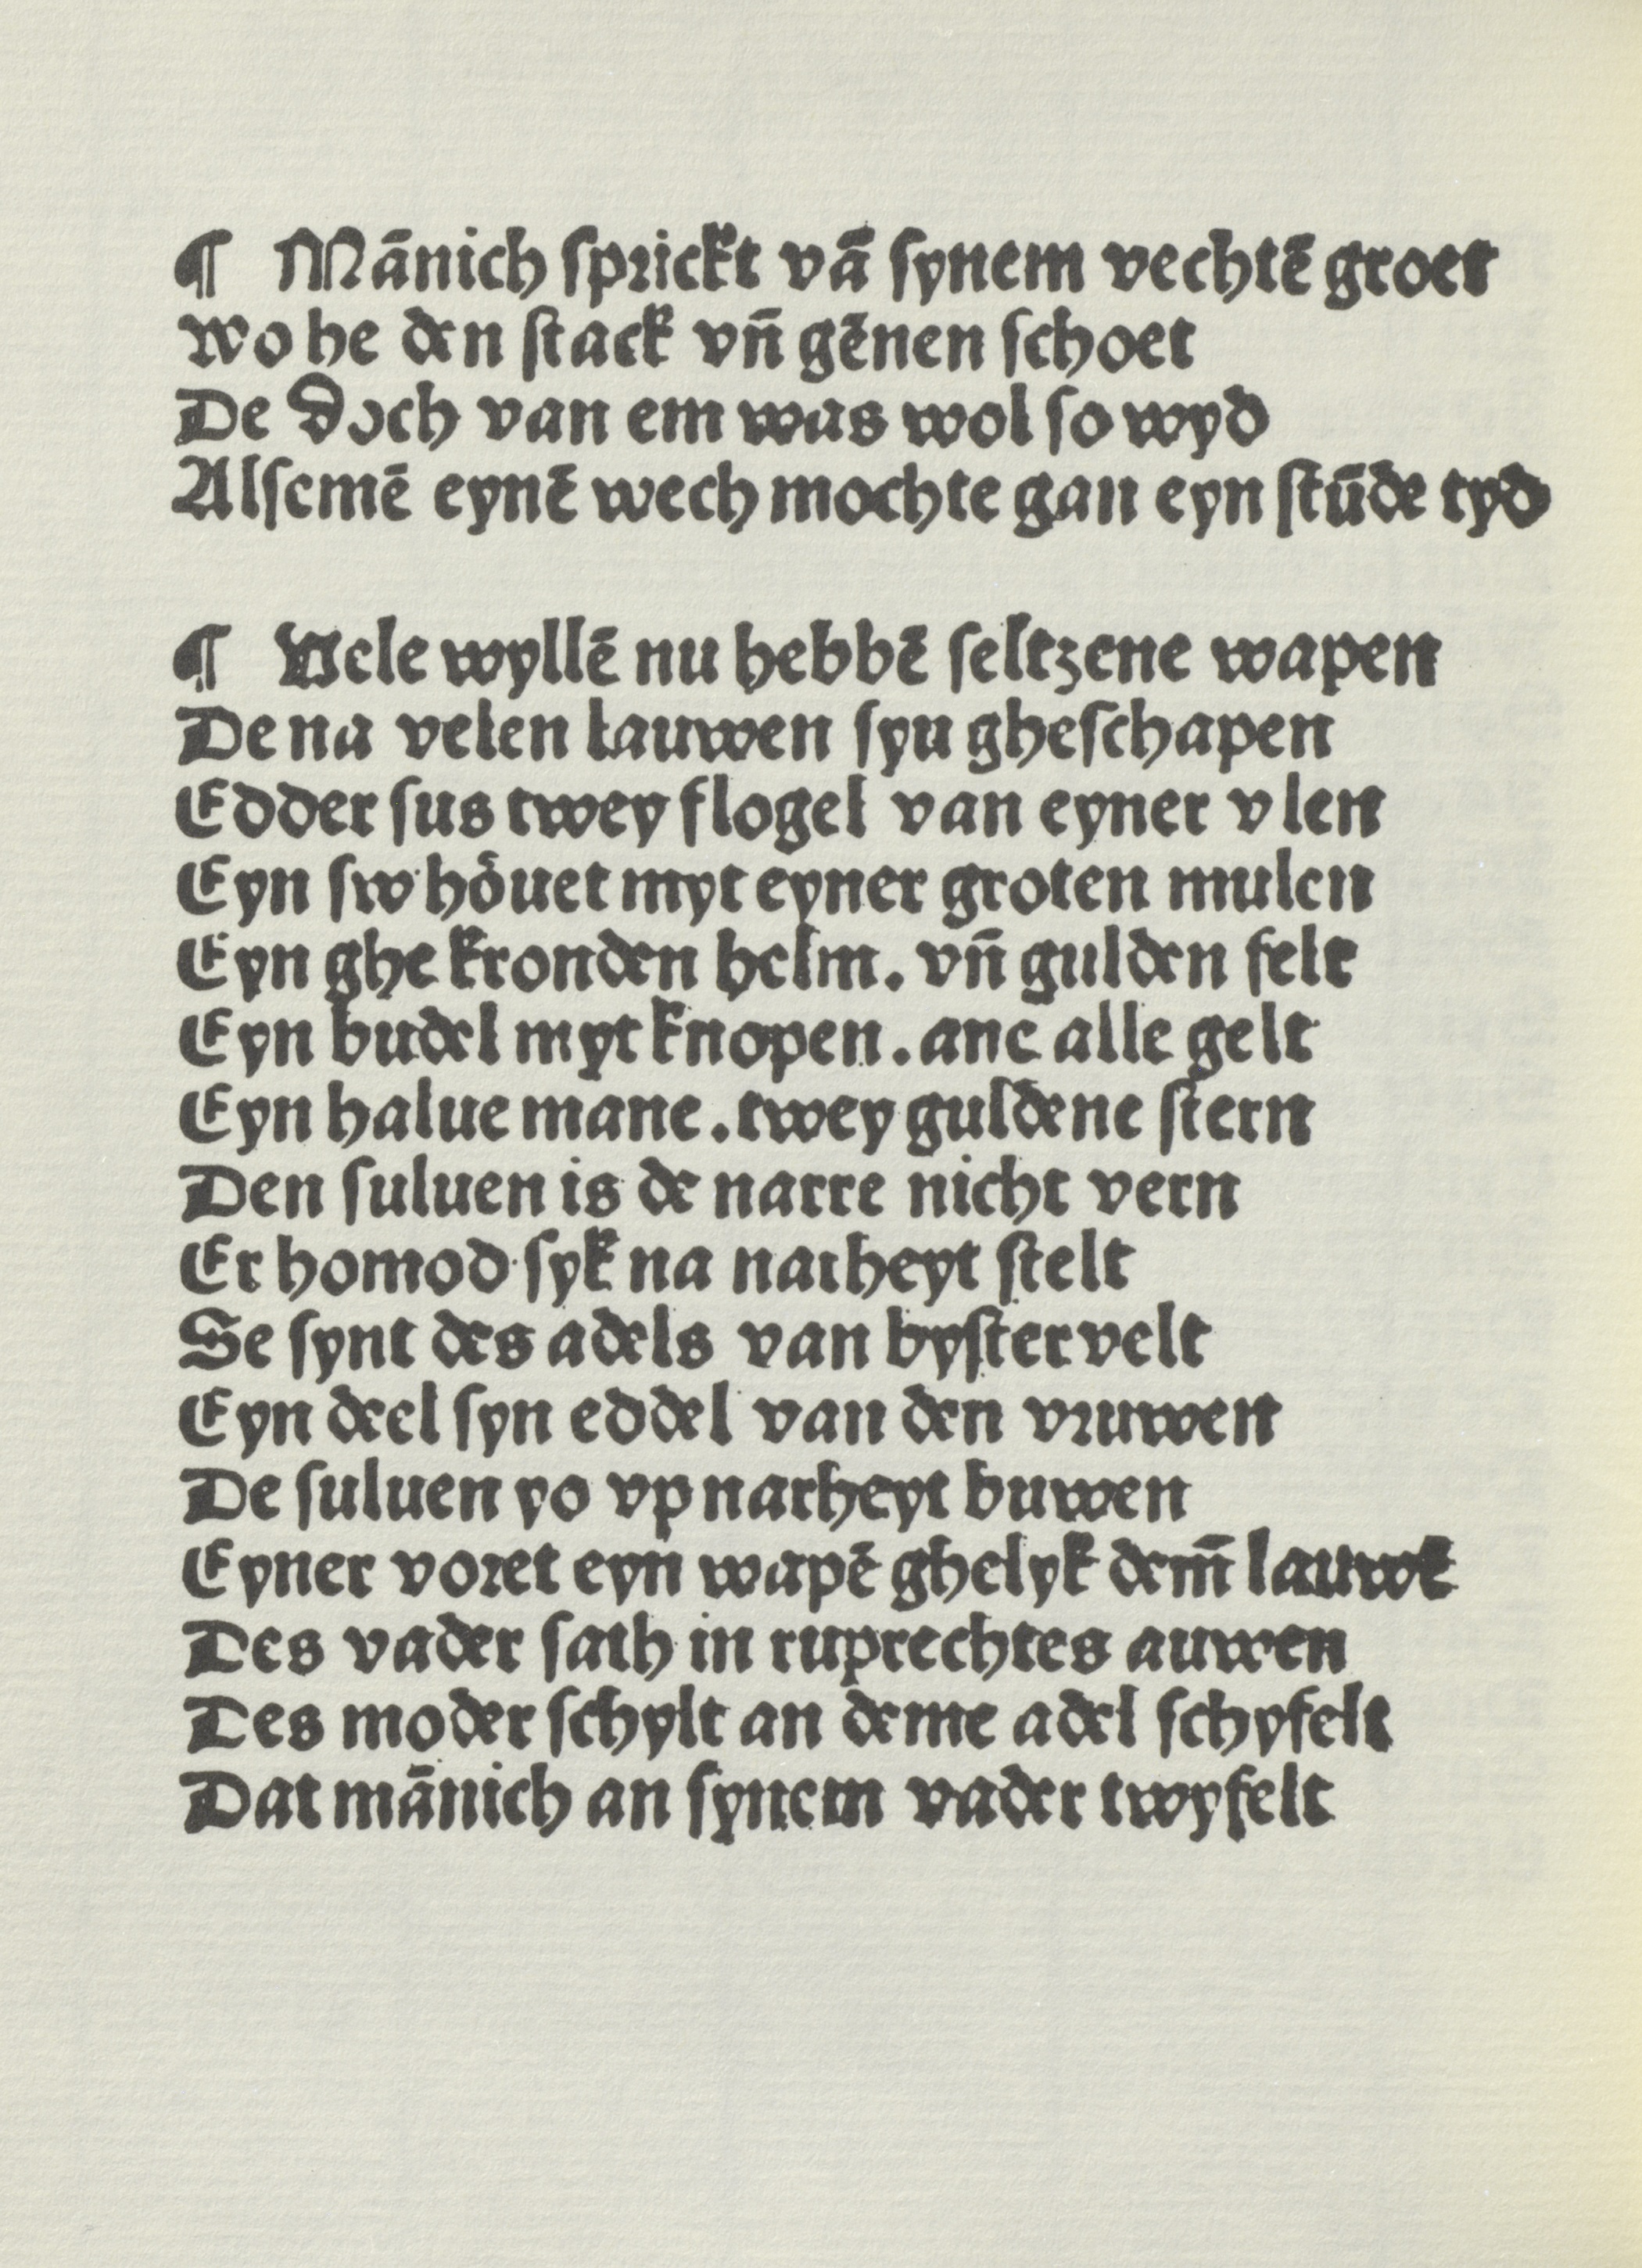 ¶ Mānich ſprickt vā ſynem vechtē groet
wo he den ſtack vn̄ gēnen ſchoet
De doch van em was wol ſo wyd
Alſemē eynē wech mochte gan eyn ſtūde tyd
¶ Vele wyllē nu hebbē ſeltzene wapen
De na velen lauwen ſyn gheſchapen
Edder ſus twey flogel van eyner vlen
Eyn ſw hoͤuet myt eyner groten mulen
Eyn ghekronden helm. vn̄ gulden felt
Eyn budel myt knopen. ane alle gelt
Eyn halue mane. twey guldene ſtern
Den ſuluen is de narre nicht vern
Er homod ſyk na narheyt ſtelt
Se ſynt des adels van byſtervelt
Eyn deel ſyn eddel van den vruwen
De ſuluen yo vp narheyt buwen
Eyner voret eyn wapē ghelyk dem̄ lauwē
Des vader ſath in ruprechtes auwen
Des moder ſchylt an deme adel ſchyfelt
Dat mānich an ſynem vader twyfelt